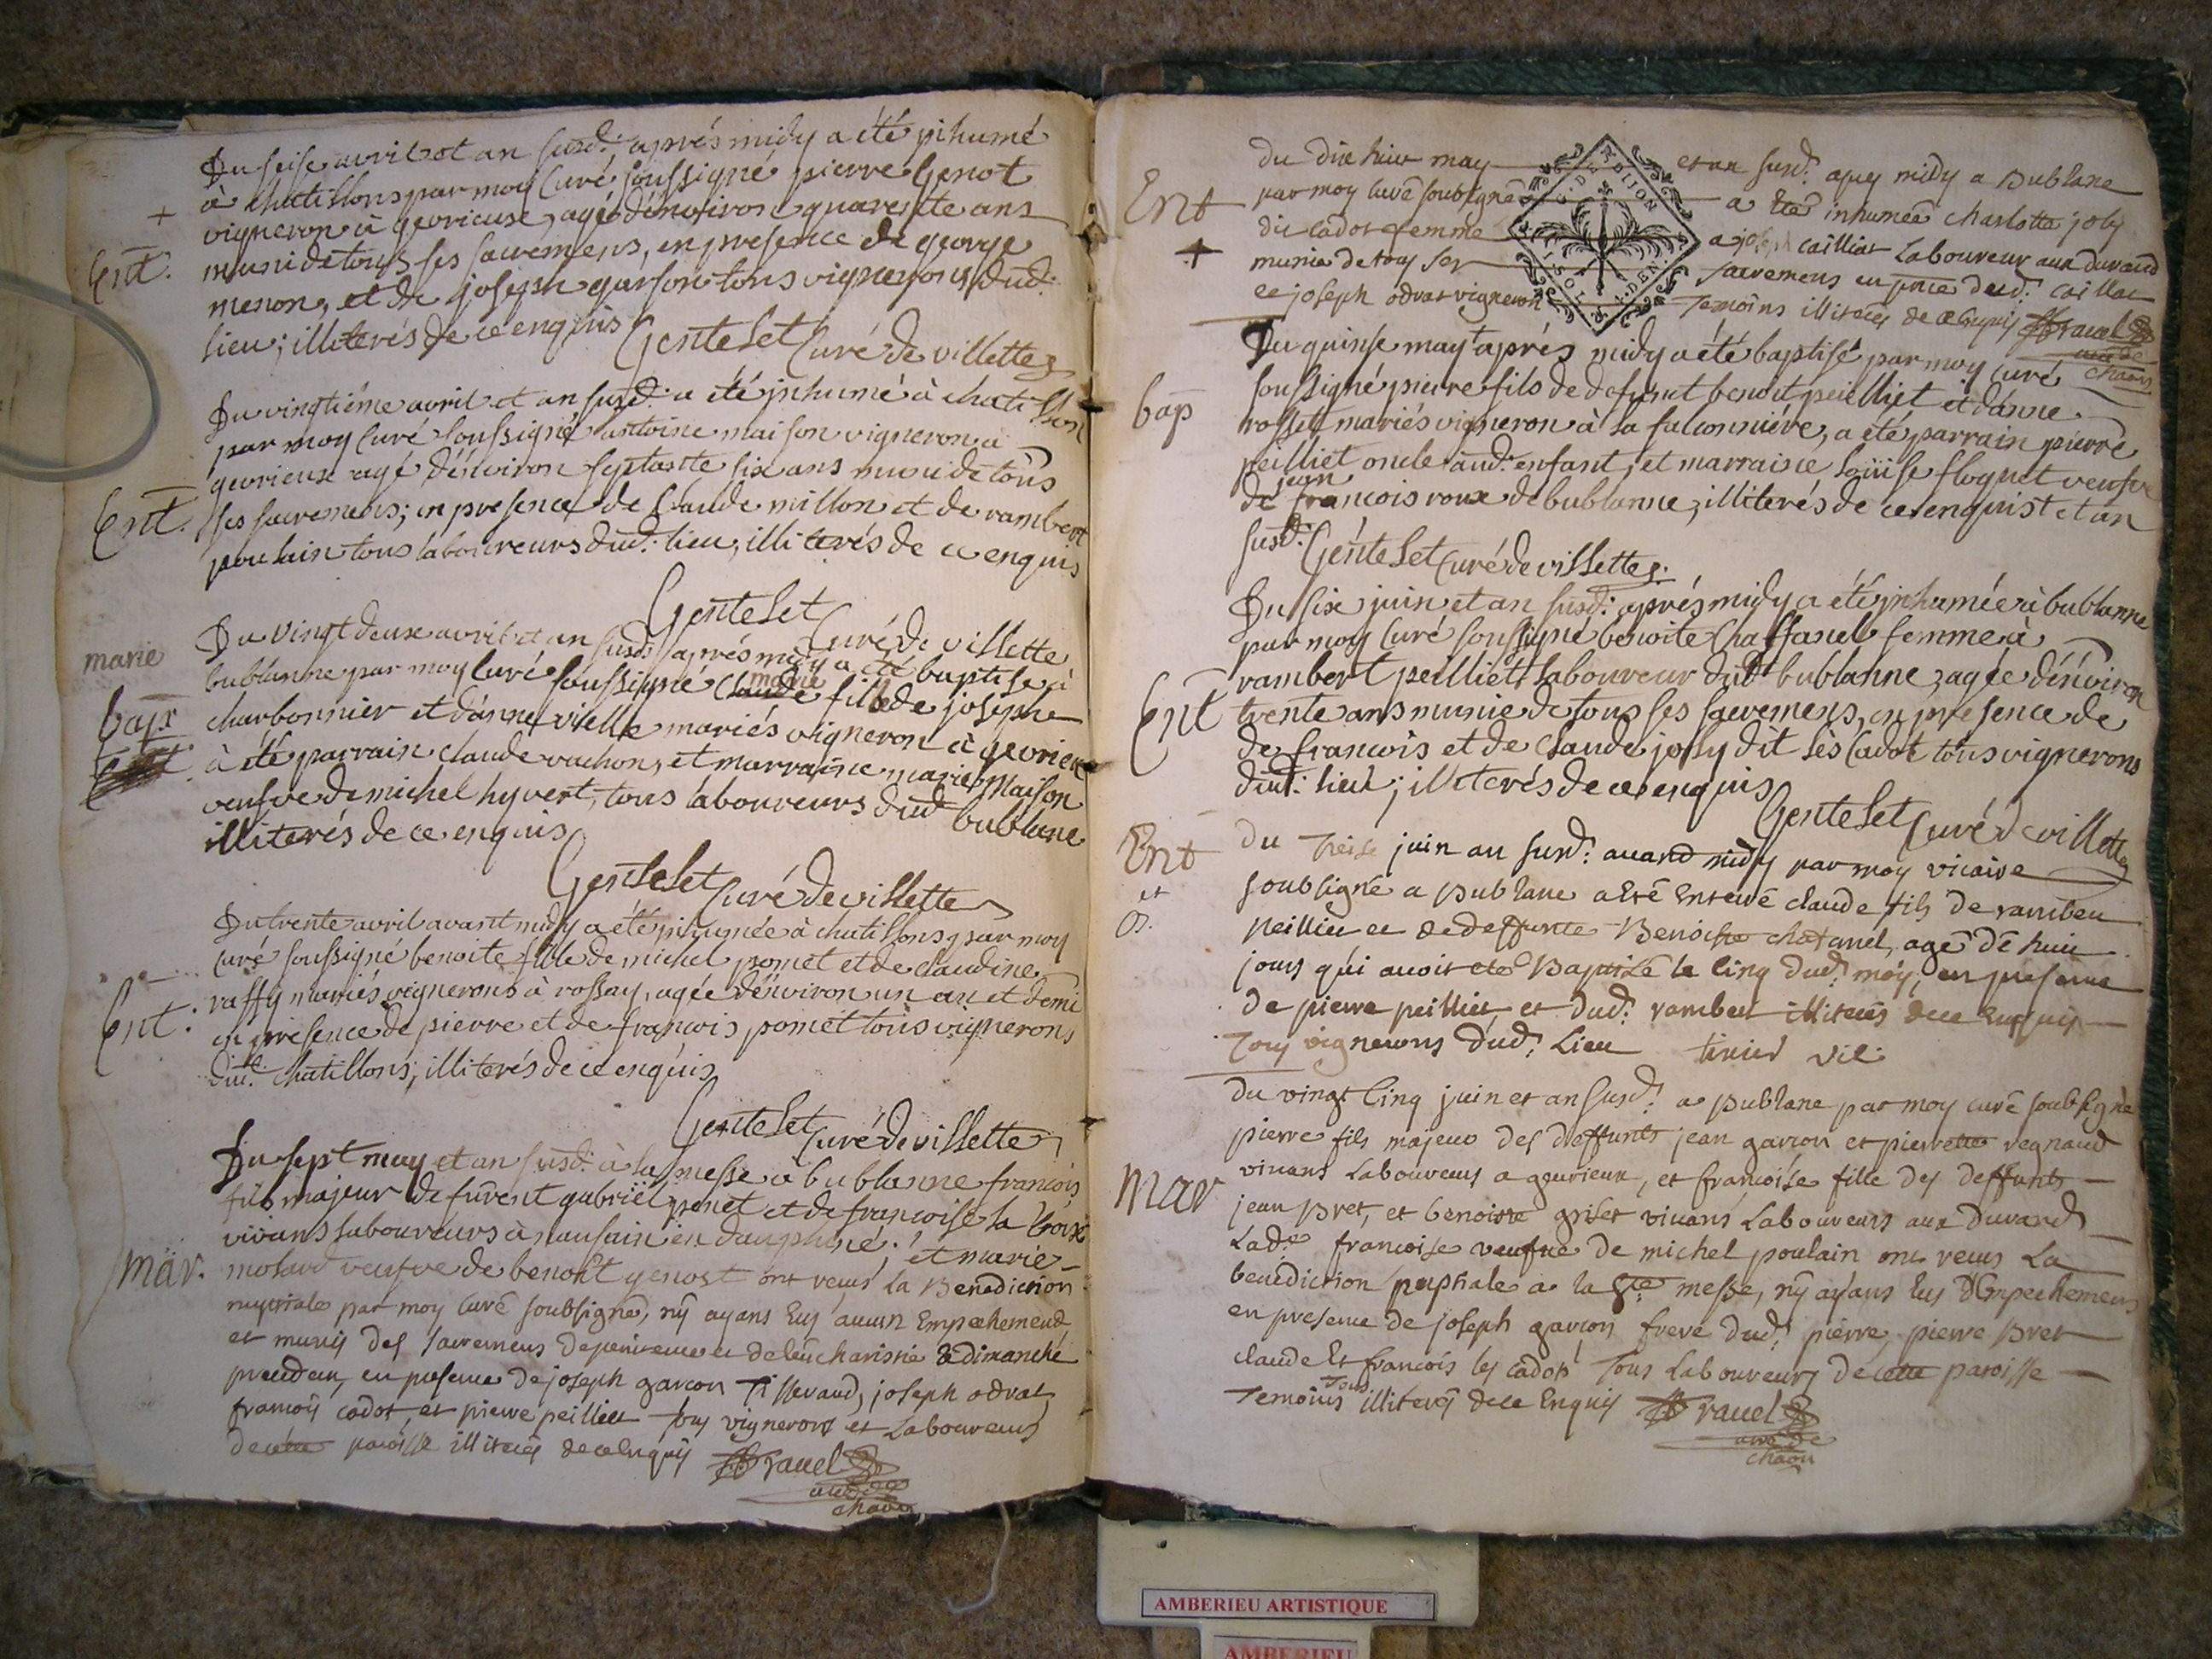 Du seise avril et an susd: aprés midy a été inhumé
à chatillons par moy curé soussigné pierre Genot
+
vigneron à gevrieuse, agé d'énviron quarente ans
Ent:
muni de tous ses sacremens, en presence de george
menon, et de joseph garson tous vignerons dud:
lieu; illiterés de ce enquis
Gentelet curé de villettes
Du vingtiéme avril et an susd: a été inhumé à chatillon
par moy curé soussigné antoine maison vigneron à
gevrieux agé d'énviron septante six ans muni de tous
Ent.
ses sacremens; en presence de claude millon et de rambert
poulain tous laboureurs dud: lieu, illiterés de ce enquis
Gentelet curé de villette
Du vingt deux avril et an susd: aprés midy a été baptisé à
marie
bublanne par moy curé soussigné claude marie fille de joseph
bap
charbonnier et d'anne vielle mariés vigneron à gevrieux
Ent
à été parrain claude vachon, et marraine marie Maison
veufve de michel hyvert, tous laboureurs dud bublane
illiterés de ce enquis
Gentelet curé de villette
Du trente avril avant midy a été inhumée à chatillons par moy
curé soussigné benoite fille de michel pomet et de claudine
raffy mariés vignerons à rossay, agée d'énviron un an et demi
Ent:
en presence de pierre et de francois pomet tous vignerons
dud: chatillons; illiterés de ce enquis
Gentelet curé de villette
Du sept may et an susd: à la messe à bublanne francois
fils majeur de fûrent gabriël penet et de francoise la croix
vivans laboureurs à en dauphiné; et marie
Mar.
molard veufve de benoît genost ont receus la Benediction
nuptiale par moy curé soubsigné, n'ÿ ayans eus aucun Empechement
et munis des sacremens de penitence et de l'eucharistie le dimanche
precedent, en presence de joseph garcon Tisserand, joseph odrat,
francois cadot, et pierre peilliet tous vignerons et Laboureurs
de cette paroisse illiterés de ce enquis ravel
curé de
chaon
du dix huit may et an susd: apres midy a Bublane
Ent
par moy curé soubsigné a été inhumée charlotte joly
dit cadot femme a joseph cailliat Laboureur aux durand
+
munie de tous ses sacremens en pnce dud: caillat
et joseph odrat vigneron Temoins illiterés de ce Enquis ravel
curé de
chaon
Du quinse may aprés midy a été baptisé par moy curé
soussigné pierre fils de defunt benoit peilliet et d'anne
bap
rosset mariés vigneron à la falconniére, a été parrain pierre
peilliet oncle aud: enfant, et marraine loüise floquet veufve
de francois jean roux de bublanne; illiterés de ce enquis et an
susd: Gentelet curé de villettes.
Du six juin et an susd: aprés midy a été inhumée à bublanne
par moy curé soussigné benoite Chaffanel femme à
rambert peilliet laboureur dud bublanne, agée d'énviron
Ent
trente ans munie de tous ses sacremens, en presence de
de francois et de claude joly dit les cadot tous vignerons
dud: lieu; illiterés de ce enquis
Gentelet curé de villettes
Ent
du Treise juin an susd: avand midy par moy vicaire
et
soubsigné a Bublane a été Enterré claude fils de rambeu
B.
peilliet et de deffunte Benoiste chafanel, agé de huit
jours qui avoit été Baptisé le cinq dud: moy, en presence
de pierre peilliet et dud: rambeu illiterés de ce Enquis
Tous vignerons dud: Lieu tirier vic:
du vingt cinq juin et an susd: a Bublane par moy curé soubsigné
pierre fils majeur des deffunts jean garcon et pierrette regnaud
vivans Laboureurs a gevrieux, et francoise fille des deffunts
Mar
jean Bret, et benoitte grilet vivans Laboureurs aux Durands
Lade francoise veufve de michel poulain ont receus La
benediction nuptiale a la ste messe, n'ÿ ayans eus d'Empechemens
en presence de joseph garcon frere dud: pierre, pierre Bret
claude Et francois les cadot Tous Laboureurs de cette paroisse
Temoins Tous illiterés de ce Enquis ravel
curé de
chaon
DIJON
AMBERIEU ARTISTIQUE
AMBERIEU